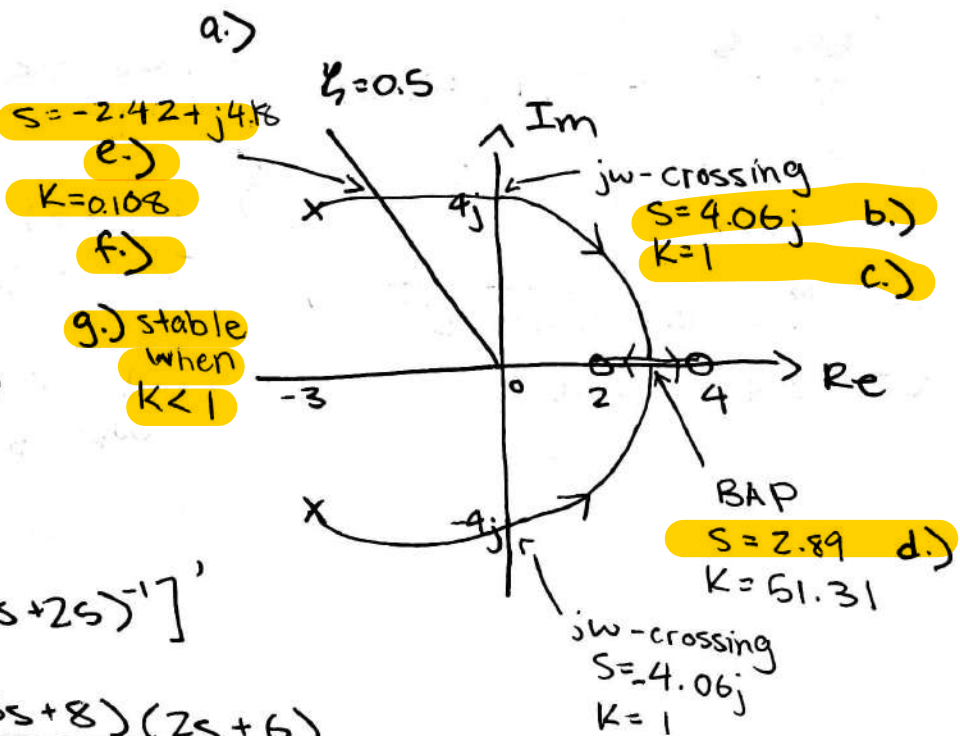 a.)
ζ=0.5
S=-2.42+j4.18
e.)
K=0.108
f.)
g.) stable
when
K<1
Im
jw-crossing
S=4.06j b.)
K=1
c.)
4j
-3
0
2
4
Re
-4j
BAP
S=2.89 d.)
K=51.31
jw-crossing
S=-4.06j
K=1
s+25)⁻¹]'
s+8)(2s+6)